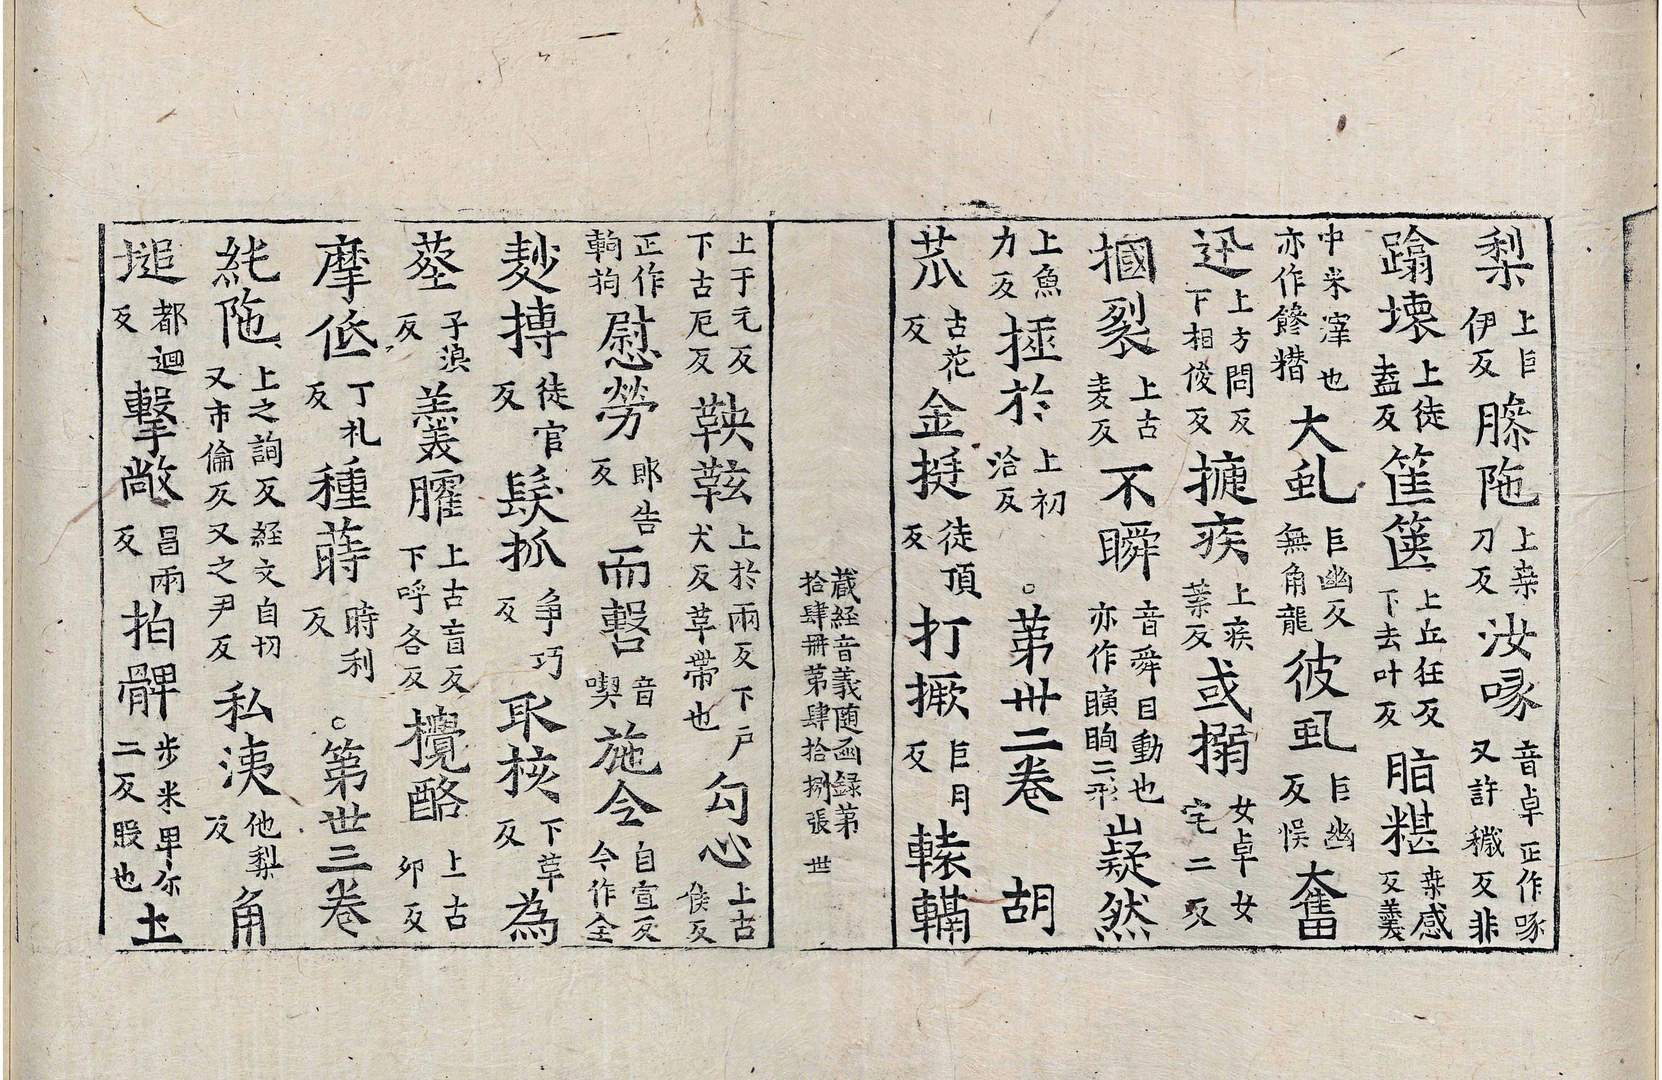 梨上巨伊反𦟛陁上桒刀反汝㖨音卓正作啄又許穢反非
蹋壊上徒盍反筐篋上丘狂反下去叶反脂糂桒感反羹
中米滓也亦作饏糣大虬巨幽反無角龍彼虬巨幽反悮大奮
迅上方問反下相俊反㨗疾上疾葉反或搦女卓女宅二反
摑裂上古麦反不瞬音舜目動也亦作瞚眴二形嶷然
上魚力反㨒於上初洽反。第卅二卷 胡
苽古花反金挺徒頂反打撅巨月反轅𨎌
藏経音義随函録第拾肆冊第肆拾捌張 世
上于元反下古厄反鞅䩙上於兩反下戶犬反草帶也勾心上古侯反
正作軥拘慰勞郎告反而㗜音喫施仐自宣反今作全
麨摶徒官反髮抓争巧反㕝核下草反為
蕐子㳙反羔羹臛上古盲反下呼各反欖酪上古卯反
摩低丁礼反種蒔時利反。第丗三卷
純陁上之詢反経文自切又市倫反又之尹反私洟他梨反角
塠都迴反擊敞昌兩反拍髀步米卑尒二反股也𡈽